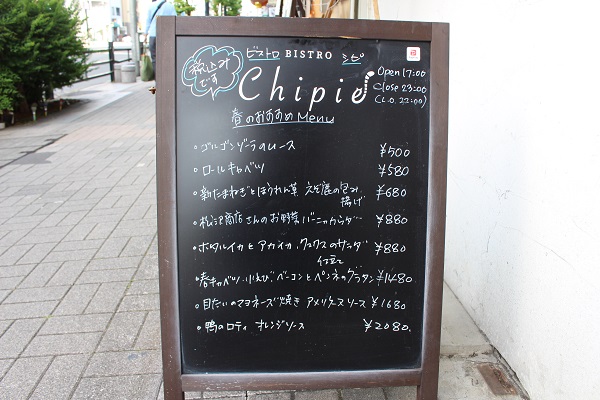 税込み
です
ビストロ BISTRO シピ
Chipie
Open 17:00
Close 23:00
(L.O. 22:00)
春のおすすめ Menu
・ゴルゴンゾーラのムース ¥500
・ロールキャベツ ¥580
・新たまねぎとほうれん草、えび 包み ¥680
揚げ
・松沢商店さんのお野菜 バーニャカウダー ¥880
・ホタルイカとアカイカ、クスクスのサラダ ¥880
仕立て
・春キャベツ、小えび、ベーコンとペンネのグラタン ¥1480
・目だいのマヨネーズ焼き アメリケーヌソース ¥1680
・鴨のロティ オレンジソース ¥2080.